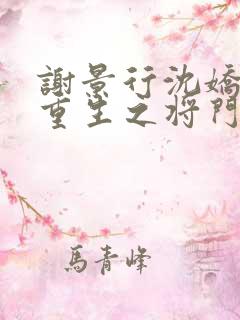 謝景行沈嬌
重生之将門
馬青峰